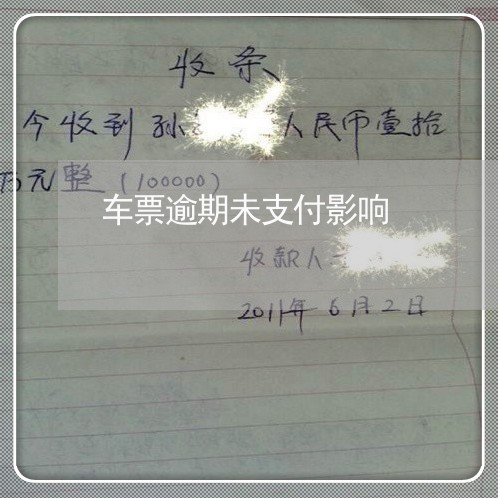 收条
今收到孙 人民币壹拾
万元整(100000)
车票逾期未支付影响
收款人
2011年6月2日